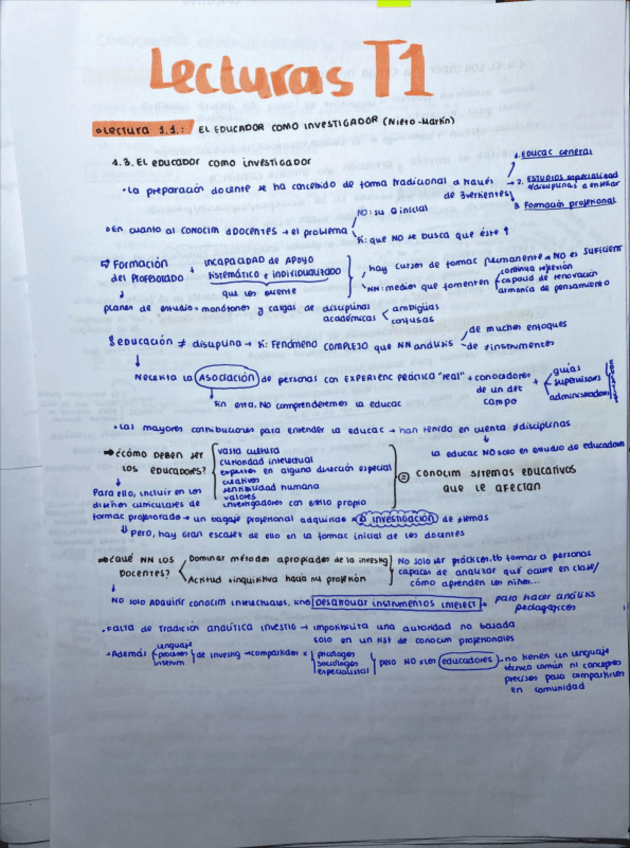 Lecturas T1
Lectura 1.1.: EL EDUCADOR COMO INVESTIGADOR (Nieto-Martín)
1.3. EL educador como investigador
· La preparación docente se ha concebido de forma tradicional a través de 3 vertientes
1. EDUCAC general
2. ESTUDIOS especialidad
≠disciplinas a enseñar
3. Formación profesional
En cuanto al CONOCIM DOCENTES → el problema
NO: su Q inicial
X: que NO se busca que éste ↑
Formación del Profesorado + INCAPACIDAD DE APOYO
sistemático e individualizado
que es docente
hay cursos de formac permanente → NO es suficiente
NN: medios que fomenten
continua reflexión
capacid de renovación
armonía de pensamiento
planes de estudio = monótonos y cargas de disciplinas académicas
ambigüas
confusas
educación ≠ disciplina → X: Fenómeno COMPLEJO que NN análisis
de muchos enfoques
de ≠instrumentos
Necesita la ASOCIACIÓN de personas con EXPERIENC PRÁCTICA "real" + conocedores de un det campo +
guías
supervisors
administradores
sin esta, NO comprenderemos la educac
· Las mayores contribuciones para entender la educac → han tenido en cuenta ≠disciplinas
la educac NO solo es estudio de educadores
→ ¿cómo DEBEN SER LOS EDUCADORES?
vasta cultura
curiosidad intelectual
expertos en alguna dirección especial
creativos
sensibilidad humana
valores
investigadores con estilo propio
CONOCIM SISTEMAS EDUCATIVOS
que le afectan
Para ello, incluir en los
diseños curriculares de
formac profesorado → un bagaje profesional adquirido x la investigación de ≠temas
Pero, hay gran escasez de ello en la formac inicial de los docentes
→ ¿QUÉ NN LOS DOCENTES?
Dominar métodos apropiados de la investig
Actitud +inquisitiva hacia su profesión
No solo ser prácticos, tb formar a personas
capaces de analizar qué ocurre en clase/
cómo aprenden los niños...
NO solo ADQUIRIR CONOCIM intelectuales, sino Desarrollar instrumentos intelect → para hacer análisis
pedagógicos
· Falta de tradición analítica investig → imposibilita una autoridad no basada
solo en un list de conocim profesionales
· Además
lenguaje
proceso
instrum
de investig → compartidos x
psicólogos
sociólogos
especialistas
pero NO x los educadores → no tienen un lenguaje
técnico común ni conceptos
precisos para compartirlos
en comunidad